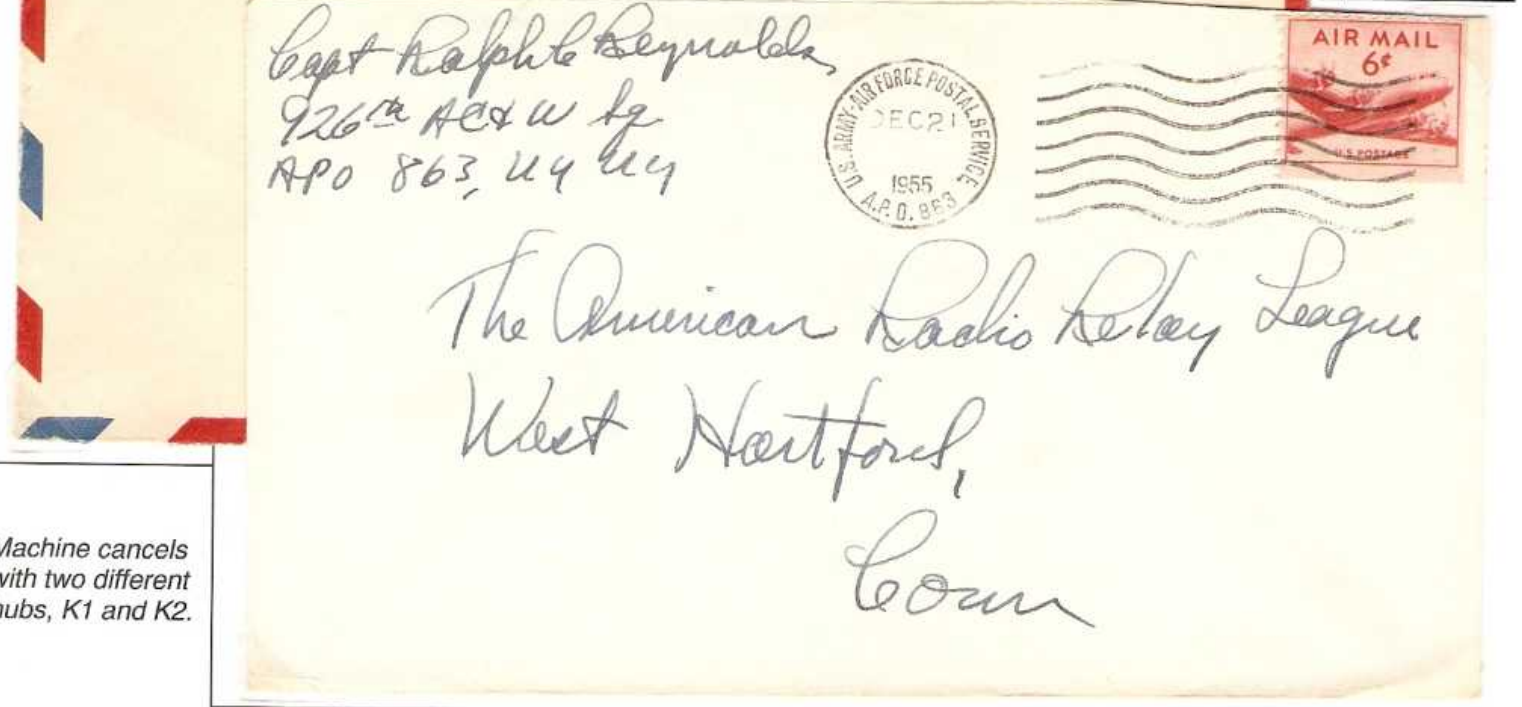 Capt Ralph E Reynolds
926th AC&W Sq
APO 863, NY NY
U.S. ARMY-AIR FORCE POSTAL SERVICE
DEC 21
1955
A.P.O. 863
AIR MAIL
6¢
U.S. POSTAGE
The American Radio Relay League
West Hartford,
Conn
Machine cancels
with two different
hubs, K1 and K2.